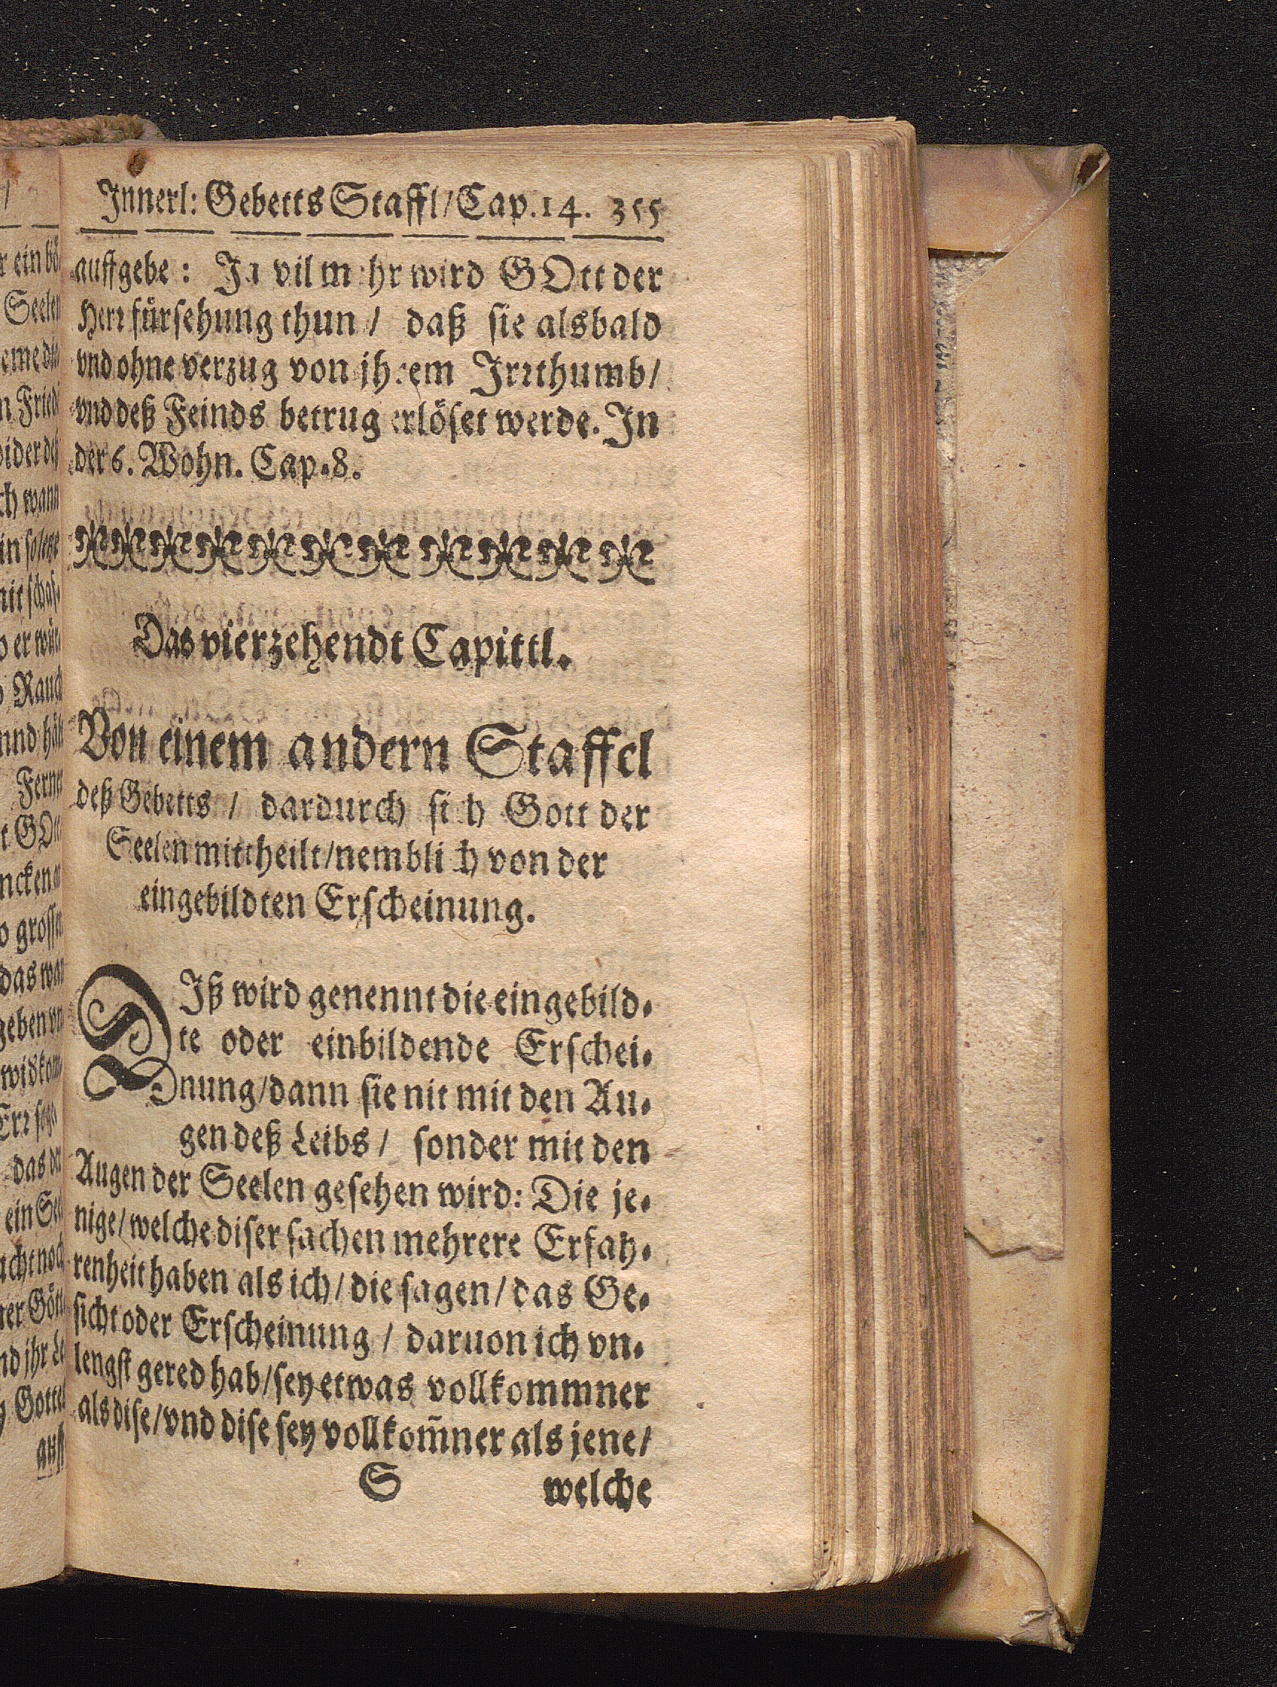 Innerl: Gebetts Staffl/ Cap. 14. 355
auffgebe: Ja vil mehr wird GOtt der
Herr fürsehung thun / daß sie alsbald
vnd ohne verzug von jhrem Irrthumb/
vnd deß Feinds betrug erlöset werde. In
der 6. Wohn. Cap. 8.
Das vierzehendt Capittl.
Von einem andern Staffel
deß Gebetts / dardurch sich Gott der
Seelen mittheilt/ nemblich von der
eingebildten Erscheinung.
DIß wird genennt die eingebild-
te oder einbildende Erschei-
nung/ dann sie nit mit den Au-
gen deß Leibs / sonder mit den
Augen der Seelen gesehen wird: Die je-
nige/ welche diser sachen mehrere Erfah-
renheit haben als ich/ die sagen/ das Ge-
sicht oder Erscheinung / daruon ich vn-
lengst gered hab/ sey etwas vollkommner
als dise/ vnd dise sey vollkom̃ner als jene/
S welche